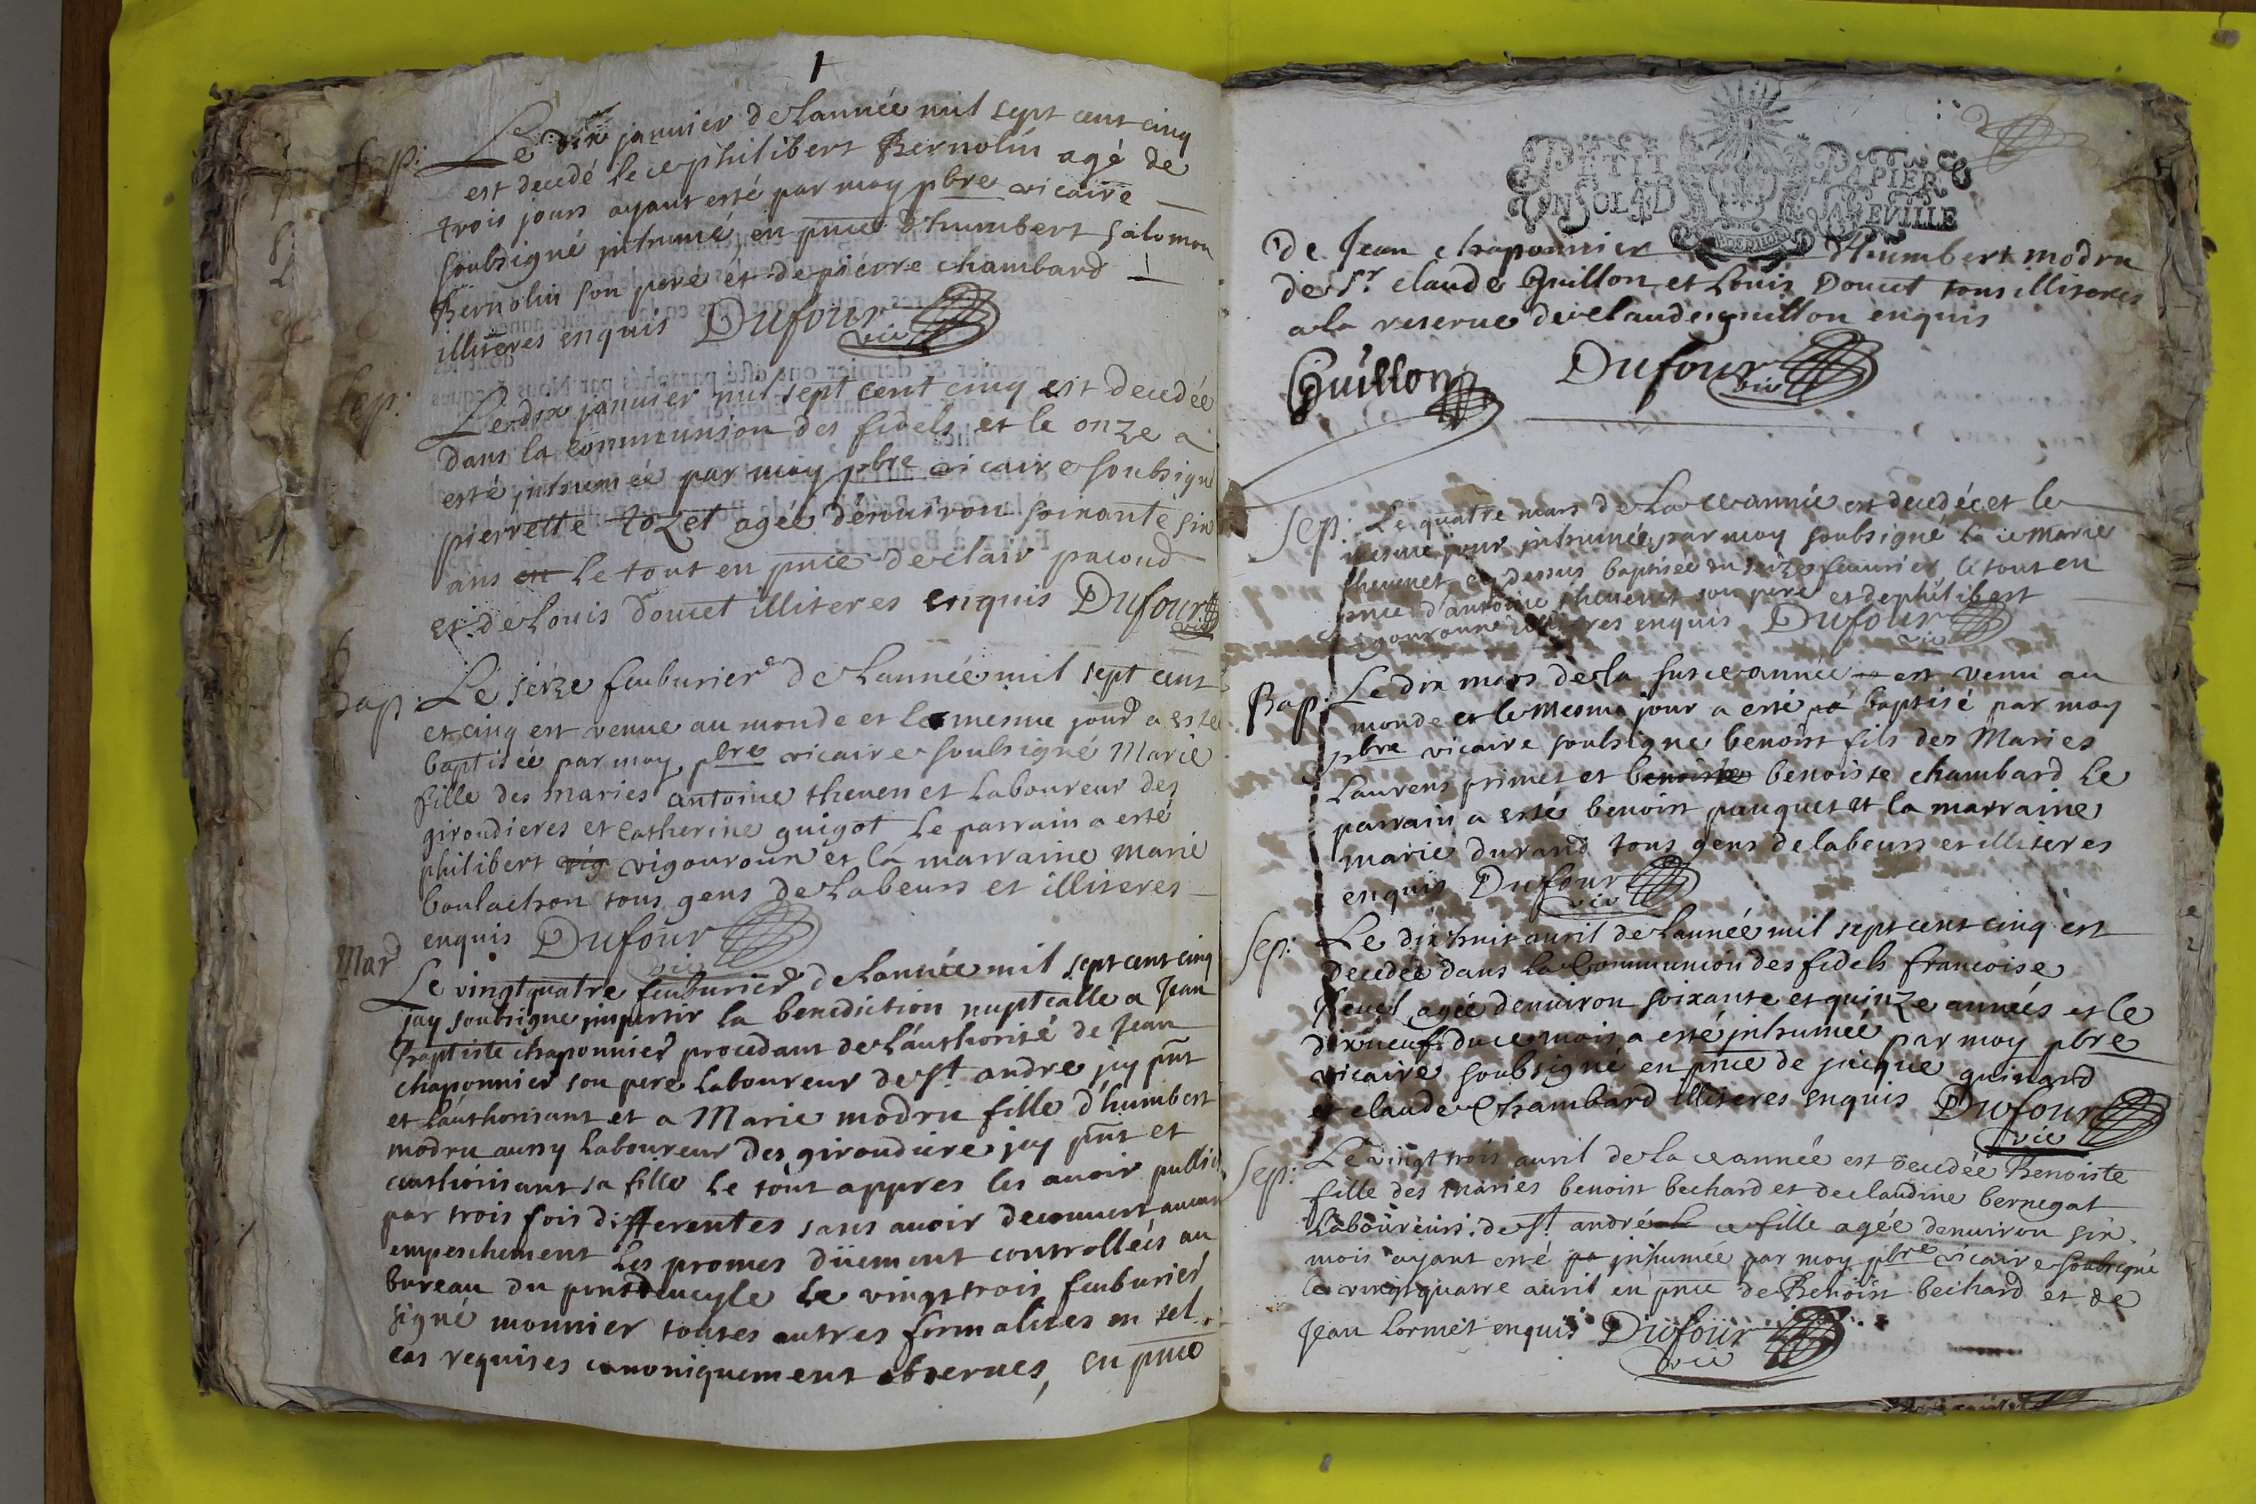 1
Sep: Le dix janvier de lannée mil sept cent cinq
est decedé le ce philibert Bernolin agé de
trois jours ayant esté par moy pbre vicaire
soubsigné inhumé en pnce d'humbert salomon
Bernolin son pere et de pierre chambard
illiteres enquis Dufour vic
Sep: Le dix janvier mil sept cent cinq est decedée
dans la communion des fidels et le onze a
esté inhumée par moy pbre vicaire soubsigné
pierrette tozet agée denuiron soixante six
ans en le tout en pnce de clair pacoud
et de Louis doucet illiteres enquis Dufour vic
Bap: Le seize feuburier de Lannée mil sept cent
et cinq est venue au monde et le mesme jour a esté
baptisée par moy pbre vicaire soubsigné Marie
fille des maries antoine thevenet Laboureur des
giroudieres et Catherine guigot Le parrain a esté
philibert vig vigouroux et la marraine marie
boulachon tous gens de Labeurs et illiteres
enquis Dufour vic
Mar Le vingtquatre feuburier de Lannée mil sept cent cinq
jay soubsigné impertir la benediction nuptialle a Jean
Baptiste chaponnier procedant de L'authorité de Jean
chaponnier son pere Laboureur de St andre icy pnt
et L'authorisant et a Marie modru fille d'humbert
modru aussy Laboureur des giroudiere icy pnt et
authorisant sa fille Le tout appres les auoir publié
par trois fois differentes sans auoir decouuert aucun
empeschement Les promes düement controllées au
bureau du pontdeueyle Le vingt trois feuburier
signé monnier toutes autres formalites en tel
cas requises canoniquement obserues, en pnce
PETIT PAPIER
UN SOL LA FEUILLE
de Jean chaponnier d'humbert modru
de Sr claude Guillon et Louis Doucet tous illiteres
a la reserue de claude guillon enquis
Guillon Dufour vic
Sep: Le quatre mars de La ce année est decedée et le
mesme jour inhumée par moy soubsigné la ce marie
thevenet cy dessus baptisée du seize feuurier le tout en
pnce d'antoine thevenet son pere et de philibert
vigouroux illiteres enquis Dufour vic
Bap: Le dix mars de la sus ce année est venu au
monde et le mesme jour a esté pa baptisé par moy
pbre vicaire soubsigné benoist fils des Maries
Laurens primet et benoiste benoiste chambard Le
parrain a esté benoist pauquet et la marraine
marie durand tous gens de labeurs et illiteres
enquis Dufour vic
Sep: Le dix huit auril de Lannée mil sept cent cinq est
decedée dans la Communion des fidels francoise
agée denuiron soixante et quinze années et le
dixneuf du ce mois a esté inhumée par moy pbre
vicaire soubsigné en pnce de jacque guinard
et claude Chambard illiteres enquis Dufour vic
Sep: Le vingt trois auril de La ce année est decedée Benoiste
fille des maries benoist bechard et de claudine bernegat
Laboureurs de St andré la ce fille agée denuiron six
mois ayant esté pa inhumée par moy pbre vicaire soubsigné
le vingtquatre auril en pnce de Benoist bechard et de
Jean Lormet enquis Dufour vic